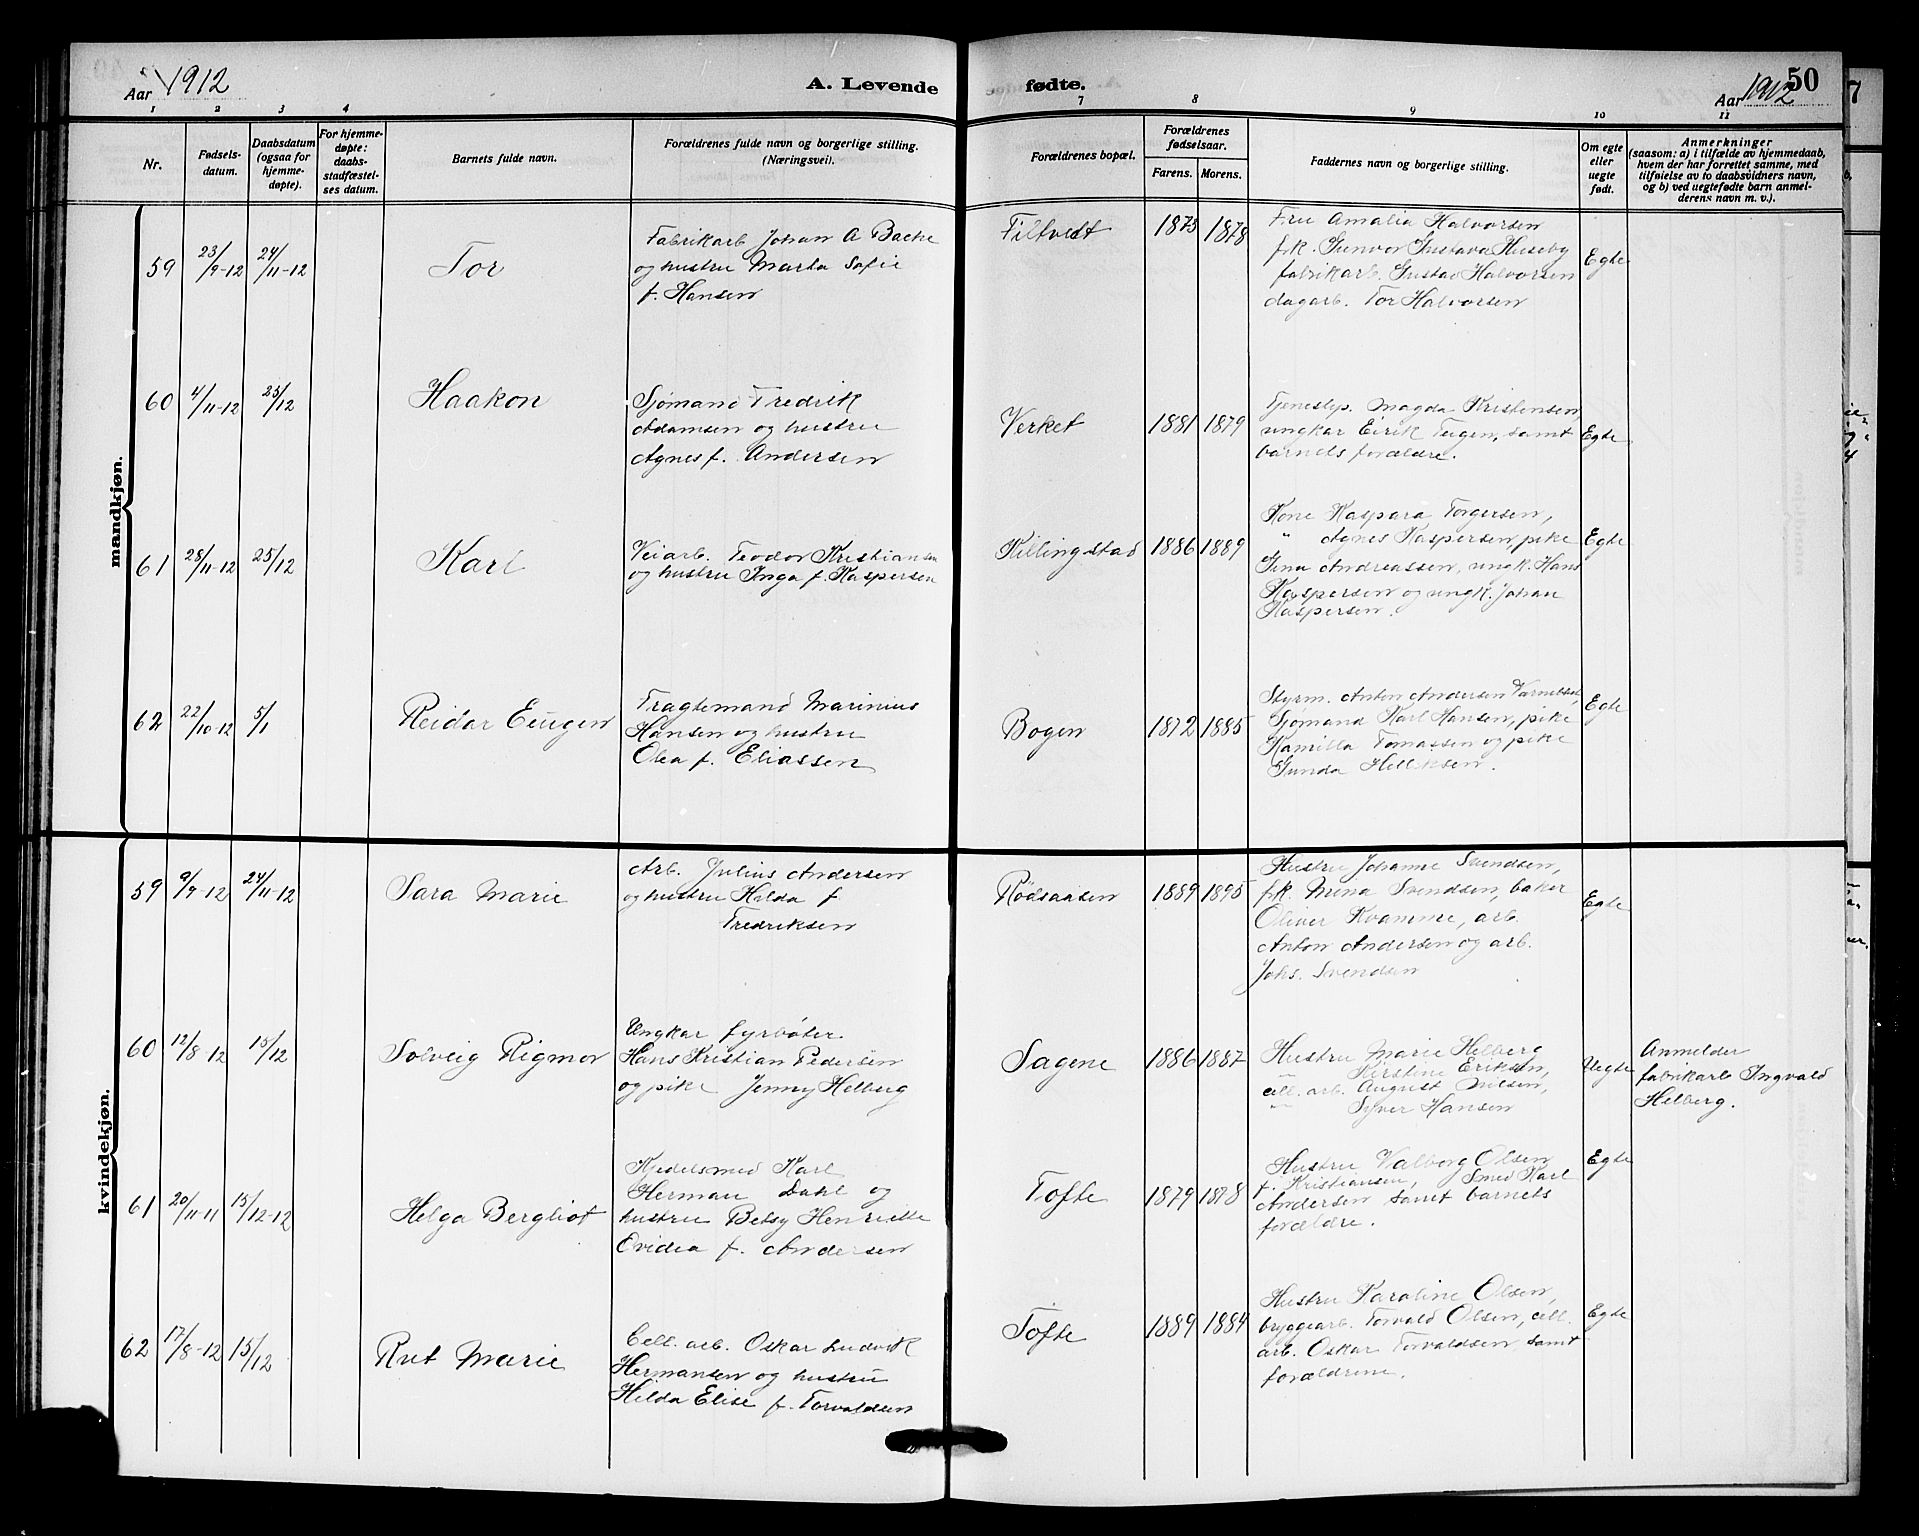 Aar 1912
A. Levende fødte.
Aar 1912
50
1 2 3 4 7 8 9 10 11
Nr.
Fødsels-
datum.
Daabsdatum
(ogsaa for
hjemme-
døpte).
For hjemme-
døpte:
daabs-
stadfæstel-
ses datum.
Barnets fulde navn.
Forældrenes fulde navn og borgerlige stilling.
(Næringsvei).
Forældrenes bopæl.
Forældrenes
fødselsaar.
Farens. Morens.
Faddernes navn og borgerlige stilling.
Om egte
eller
uegte
født.
Anmerkninger
(saasom: a) i tilfælde av hjemmedaab,
hvem der har forrettet samme, med
tilføielse av to daabsvidners navn,
og b) ved uegtefødte barn anmel-
derens navn m. v.).
mandkjøn.
59 23/9-12 24/11-12
Tor
Fabrikarb Johan A Bache
og hustru Marta Sofie
f. Hansen
Filtvedt
1873 1878
Fru Amalia Halvorsen
f.k. Gunvor Gustava Huseby
fabrikarb. Gustav Halvorsen
dagarb. Tor Halvorsen
Egte
60 4/11-12 25/12
Haakon
Sjømand Fredrik
Adamsen og hustru
Agnes f. Andersen
Verket
1881 1879
Tjenestep. Magda Kristensen,
ungkar Eirik Teigen, samt
barnets forældre.
Egte
61 28/11-12 25/12
Karl
Veiarb. Teodor Kristiansen
og hustru Inga f. Kaspersen
Killingstad
1886 1889
Kone Kaspara Torgersen,
" Agnes Kaspersen, pike
Gina Andreassen, ungk. Hans
Kaspersen og ungk. Johan
Kaspersen.
Egte
62 22/10-12 5/1
Reidar Eugen
Fragtemand Marinius
Hansen og hustru
Olea f. Eliassen
Bogen
1872 1885
Styrm. Anton Andersen
Sjømand Karl Hansen, pike
Kamilla Tomassen og pike
Gunda
Egte
kvindekjøn.
59 9/9-12 24/11-12
Sara Marie
Arb. Julius Andersen
og hustru Hilda f
Fredriksen
Rødsaasen
1889 1895
Hustru Johanne Svendsen,
f.k. Mina Svendsen, baker
Oliver Kvamme, arb.
Anton Andersen og arb.
Johs. Svendsen
Egte
60 12/8-12 15/12
Solveig Rigmor
Ungkar fyrbøter
Hans Kristian Pedersen
og pike Jenny Helberg
Sagene
1886 1887
Hustru Marie Helberg
" Kirstine Eriksen,
cell. arb. August Nilsen,
" Syver Hansen
Uegte
Anmelder
fabrikarb Ingvald
Helberg.
61 20/11-11 15/12-12
Helga Bergliot
Kjedelsmed Karl
Herman Dahl og
hustru Betsy Henriette
Ovidea f. Andersen
Tofte
1879 1878
Hustru Valborg Olsen
f. Kristiansen, Smed Karl
Andersen samt barnets
forældre.
Egte
62 17/8-12 15/12
Rut Marie
Cell. arb. Oskar Ludvik
Hermansen og hustru
Hilda Elise f. Torvaldsen
Tofte
1889 1884
Hustru Karoline Olsen,
bryggearb. Torvald Olsen, cell.
arb. Oskar Torvaldsen, samt
forældrene.
Egte